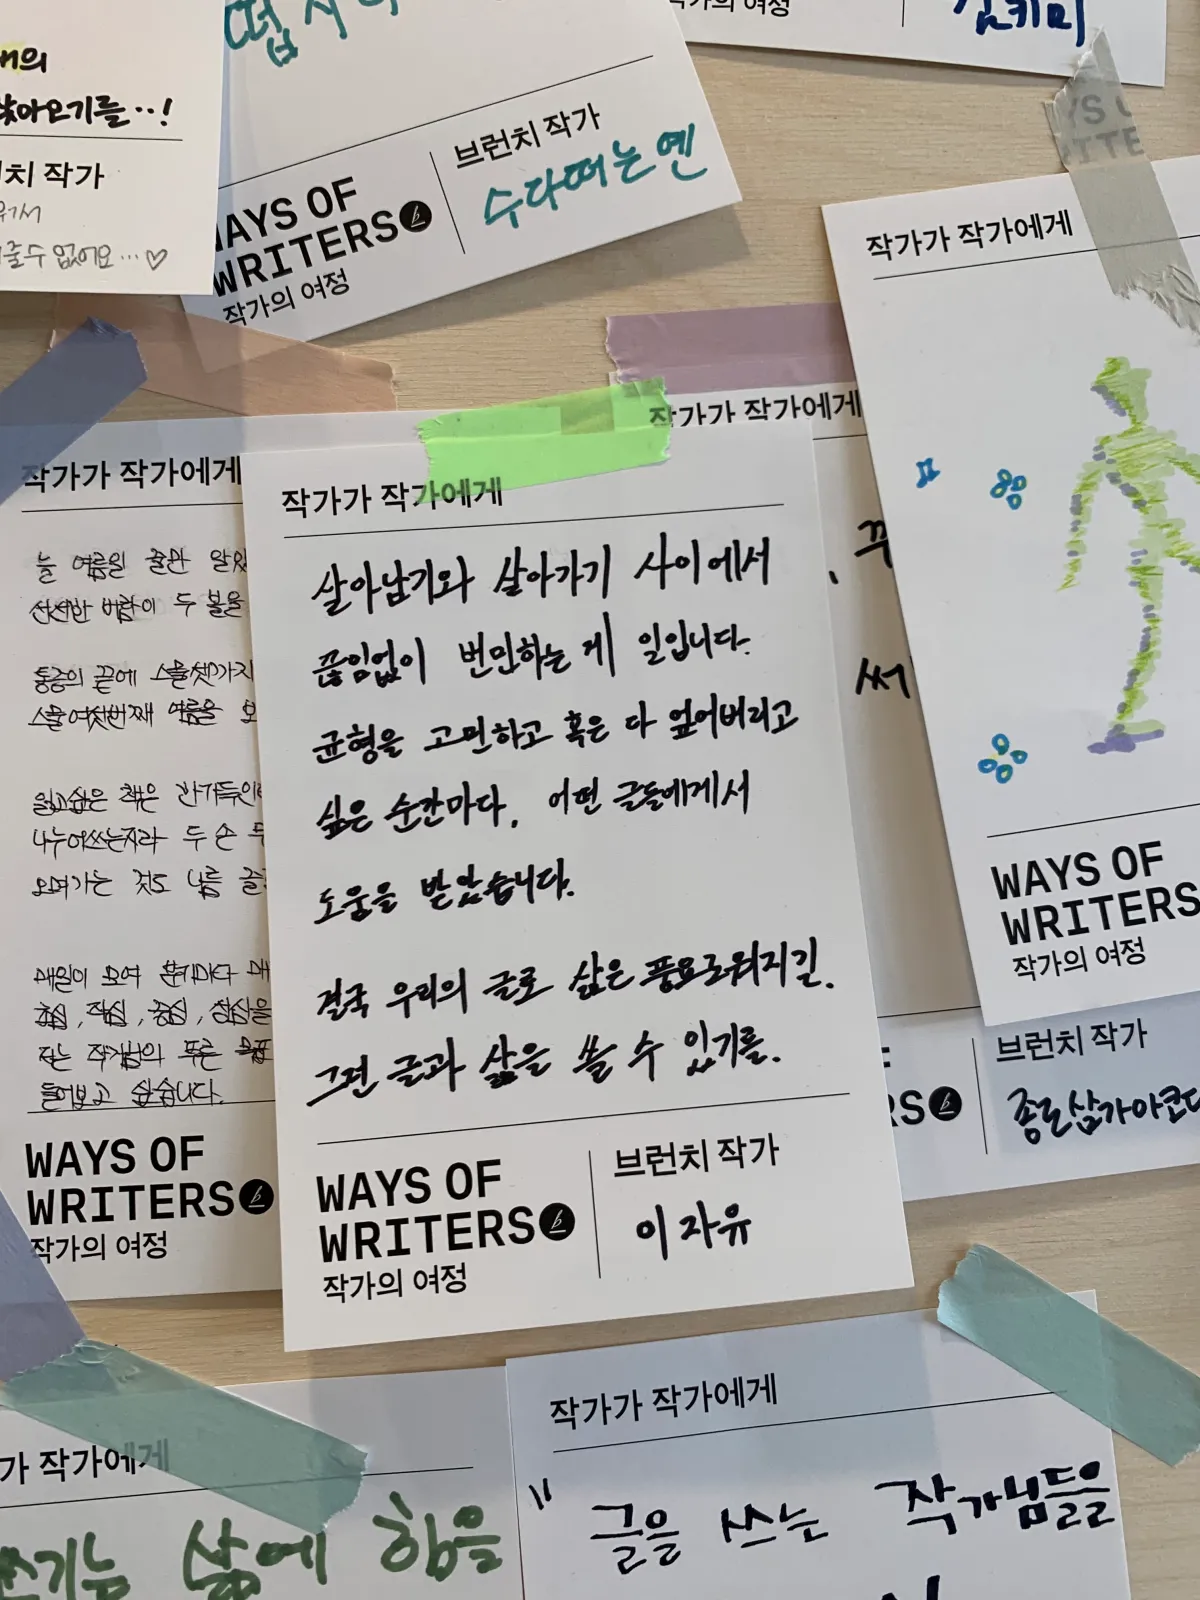 개의
찾아오기를..!
치 작가
줄 수 없어요...♡
WAYS OF
WRITERS
작가의 여정
브런치 작가
수다떠는 옌
작가의 여정
김키미
작가가 작가에게
WAYS OF
WRITERS
작가의 여정
작가가 작가에게
늘 여름일 줄만 알았
선선한 바람이 두 볼을
통증의 끝에 스물셋가지
스물여섯번째 여름을
읽고싶은 책은 한가득인데
나누어쓰는지라 두 손
오려가는 것도 나름
매일이 모여 분기마다
저는 작가님의 푸른
들여보고 싶습니다.
WAYS OF
WRITERS
작가의 여정
작가가 작가에게
살아남기와 살아가기 사이에서
끊임없이 번민하는 게 일입니다.
균형을 고민하고 혹은 다 엎어버리고
싶은 순간마다, 어떤 글들에게서
도움을 받았습니다.
결국 우리의 글로 삶은 풍요로워지길.
그런 글과 삶을 쓸 수 있기를.
WAYS OF
WRITERS
작가의 여정
브런치 작가
이자유
작가가 작가에게
써
RS
브런치 작가
종로삼가아코디
가 작가에게
쓰기는 삶에 힘을
작가가 작가에게
" 글을 쓰는 작가님들을